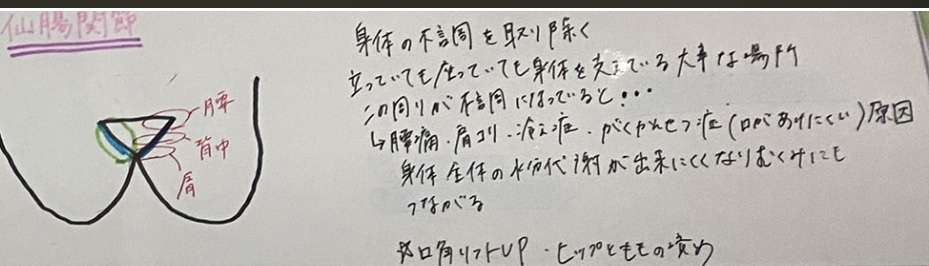 仙腸関節
腰
背中
肩
身体の不調を取り除く
立っていても座っていても身体を支えている大事な場所
この周りが不調になっていると・・・
↳腰痛・肩コリ・冷え症・がくかんせつ症(口があけにくい)原因
身体全体の水分代謝が出来にくくなりむくみにも
つながる
口角リフトUP・ヒップとももの境め